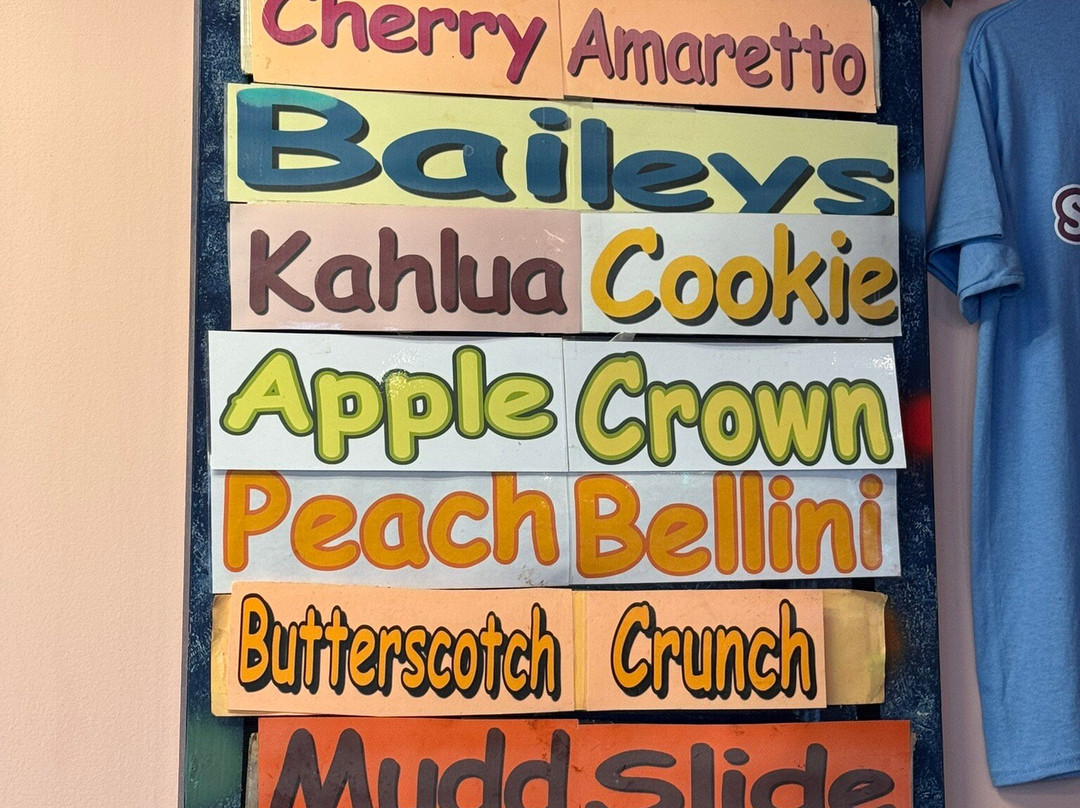 Cherry Amaretto
Baileys
Kahlua Cookie
Apple Crown
Peach Bellini
Butterscotch Crunch
Mudd Slide